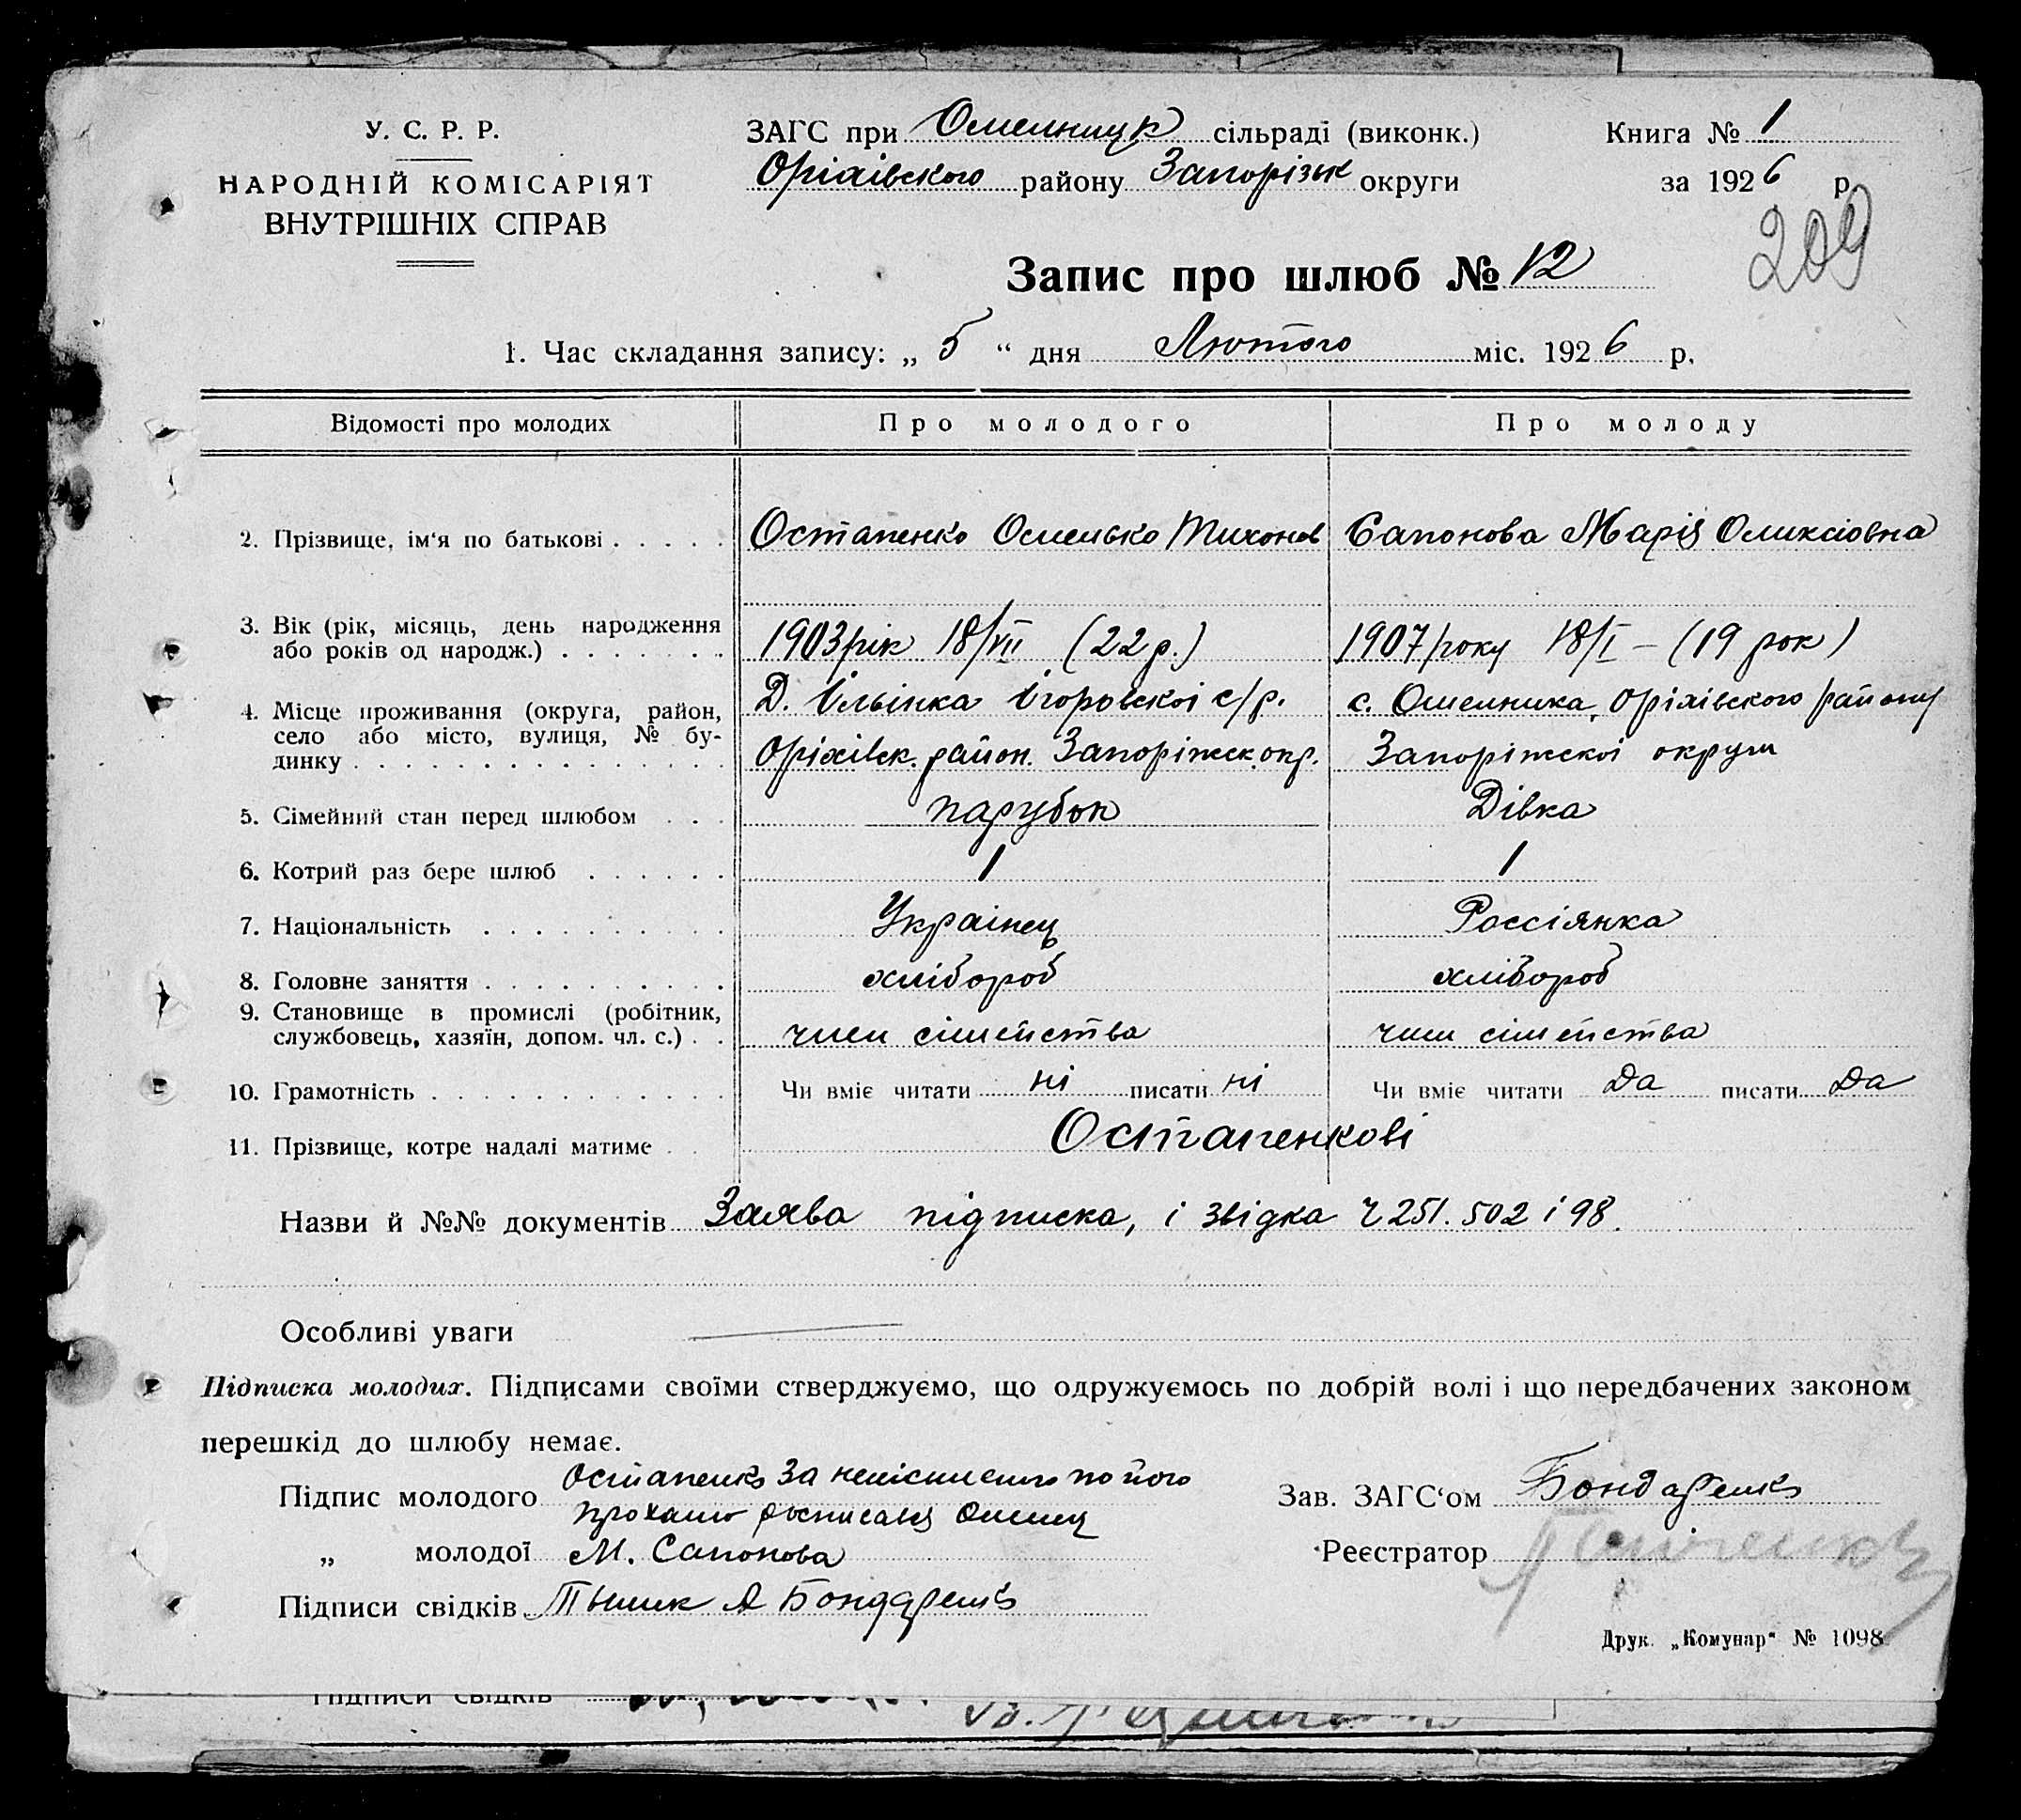 У. С. Р. Р.
НАРОДНІЙ КОМІСАРІЯТ
ВНУТРІШНІХ СПРАВ
ЗАГС при Омелницк сільраді (виконк.)
Оріхівского району Запорізьк округи
Книга № 1
за 1926 р.
209
Запис про шлюб № 12
1. Час складання запису: „ 5 “ дня Лютого міс. 1926 р.
Відомості про молодих Про молодого Про молоду
2. Прізвище, ім‘я по батькові . . . . . Остапенко Омелько Тихонов Сапонова Марія Оликсіовна
3. Вік (рік, місяць, день народження
або років од народж.) . . . . . . . 1903 рік 18/VII (22 р.) 1907 року 18/I – (19 рок)
4. Місце проживання (округа, район,
село або місто, вулиця, № бу-
динку . . . . . . . . . . . . . . .
Д. Ільінка Ігоровскоі с/р.
Оріхівск. район. Запоріжск. окр.
с. Омелника, Оріхівского району
Запоріжскоі округи
5. Сімейний стан перед шлюбом . . . парубок Дівка
6. Котрий раз бере шлюб . . . . . . 1 1
7. Національність . . . . . . . . . . Українец Россіянка
8. Головне заняття . . . . . . . . . . хлібороб хлібороб
9. Становище в промислі (робітник,
службовець, хазяїн, допом. чл. с.) . . член сімейства член сімейства
10. Грамотність . . . . . . . . . . . . Чи вміє читати ні писати ні Чи вміє читати Да писати Да
11. Прізвище, котре надалі матиме . . Остапенкові
Назви й №№ документів Заява підписка, і звідка Ч 251. 502 і 98.
Особливі уваги
Підписка молодих. Підписами своїми стверджуємо, що одружуємось по добрій волі і що передбачених законом
перешкід до шлюбу немає.
Підпис молодого Остапенко за по його
росписався
„ молодої М. Сапонова
Підписи свідків А Бондаренко
Зав. ЗАГС‘ом Бондаренко
Реєстратор
Друк. „Комунар“ № 1098
Підписи свідків